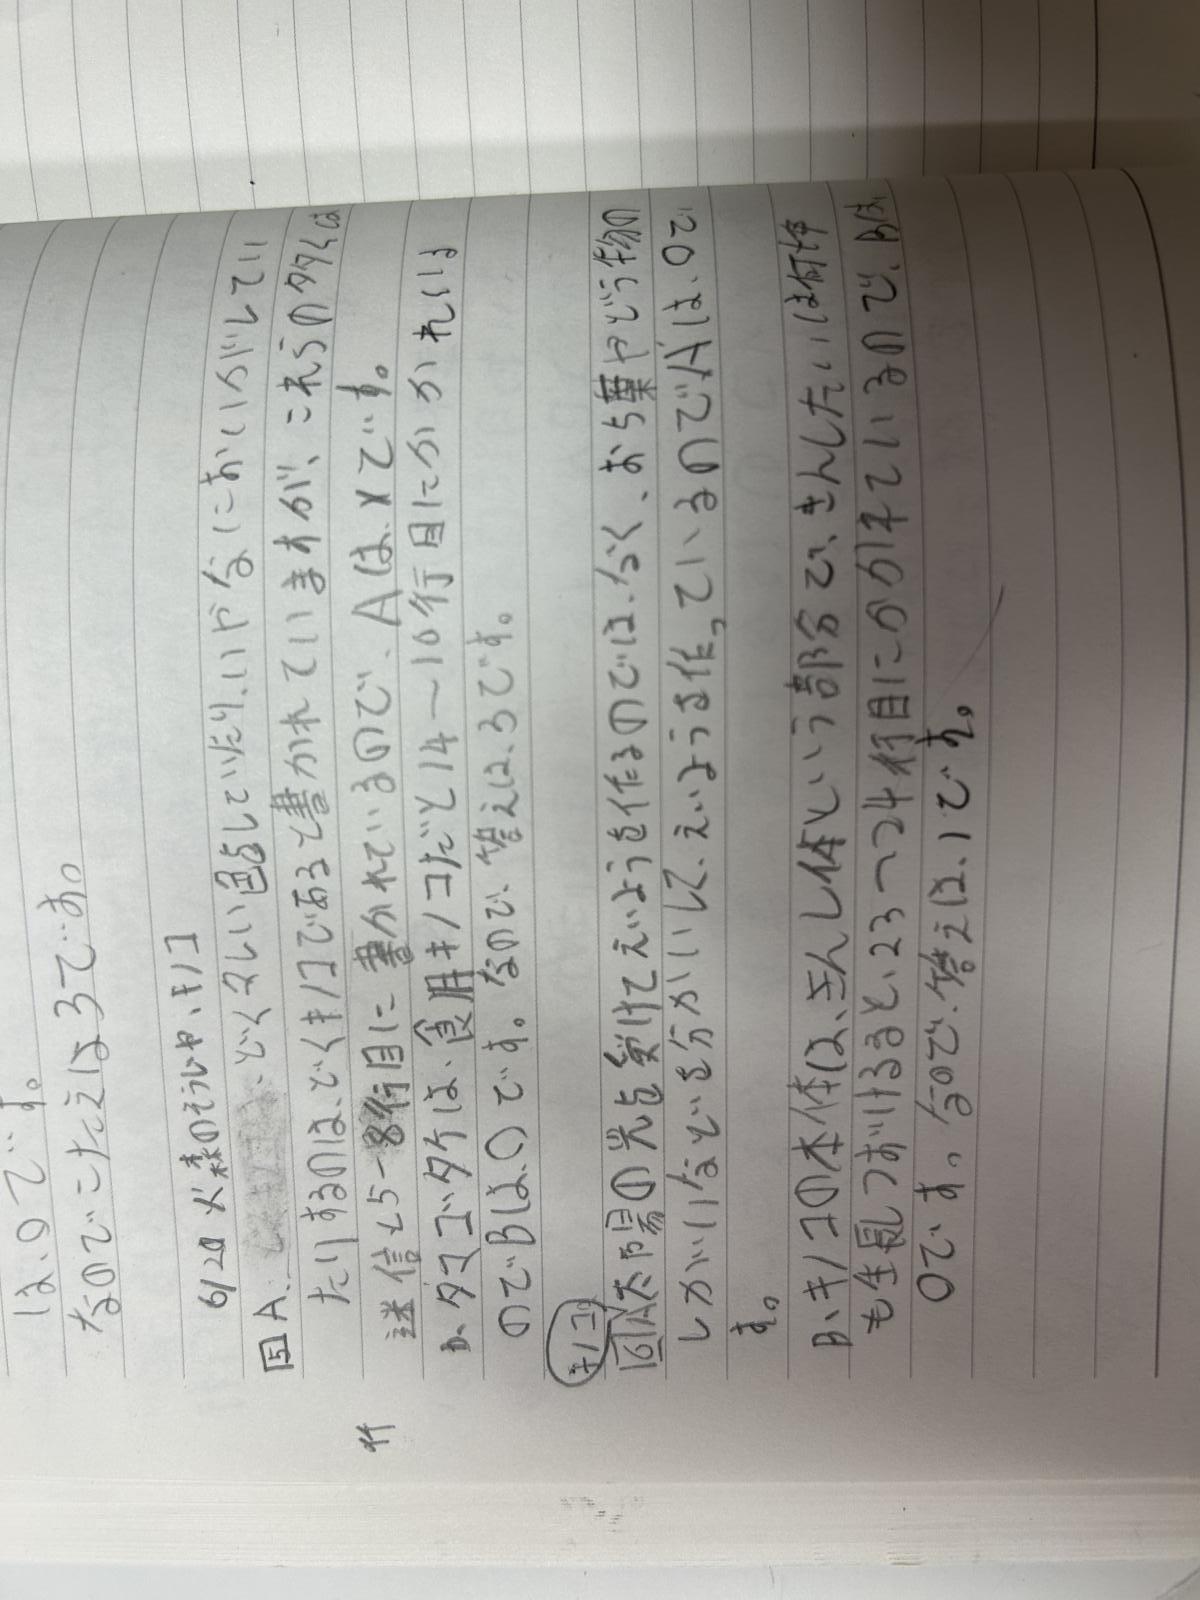 は、○です。
なのでこたえは3です。
6/20 森のそうじや、キノコ
5 A. どくどくしい色をしていたり、いやなにおいがしてい
たりするのは、どくキノコであると書かれていますが、これらの多くは
迷信と5-8行目に書かれているので、Aは、×です。
B、タマゴタケは、食用キノコだと14〜16行目にかかれている
のでBは、○です。なので、答えは、3です。
キノコ
6 A太陽の光を受けてえいようを作るのでは、なく、おち葉やどう物の
しがいなどを分かいして、えいようを作っているのでAは、○で
す。
B、キノコの本体は、きんし体という部分で、きんしたいは何年
も生長しつずけると、23〜24行目にかかれているので、Bは、
○です。なので、答えは、1です。